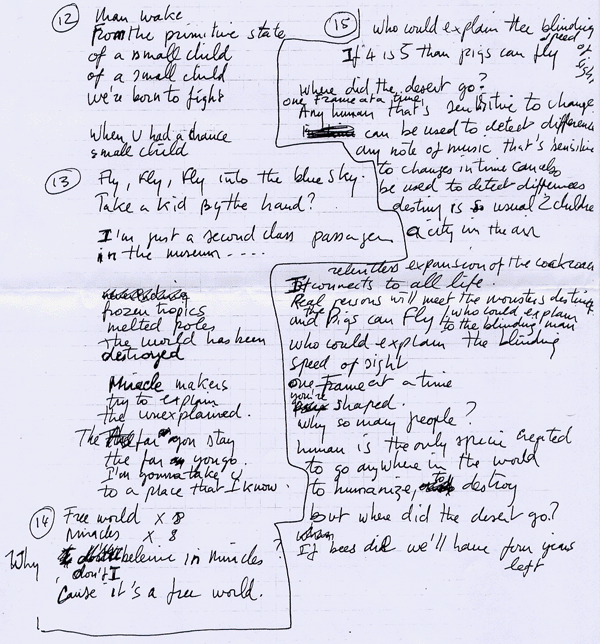 12 Man wake
From the primitive state
of a small child
of a small child
we're born to fight
When U had a chance
small child
13 Fly, Fly, Fly into the blue sky.
Take a kid By the hand?
I'm just a second class passenger
in the museum ....
frozen tropics
melted poles
the world has been
destroyed
Miracle makers
try to explain
the unexplained.
The far you stay
the far you go.
I'm gonna take U
to a place that I know.
14 Free world x 8
Miracles x 8
Why believe in miracles
don't I
cause it's a free world.
15 Who could explain the blinding
speed of
If 4 is 5 than pigs can fly
Where did the desert go?
one frame at a time,
Any human that's sensitive to change
can be used to detect difference
any note of music that's sensitive
to changes in time can also
be used to detect differences
destiny is usual 2 children
a city in the air
relentless expansion of the
It connects to all life.
Real persons will meet the monsters destiny
and the Pigs can Fly who could explain
to the blinding man
who could explain the blinding
speed of sight
one frame at a time
you're shaped.
Why so many people?
human is the only specie created
to go anywhere in the world
to humanize, to destroy
but where did the desert go?
If bees die we'll have four years
left